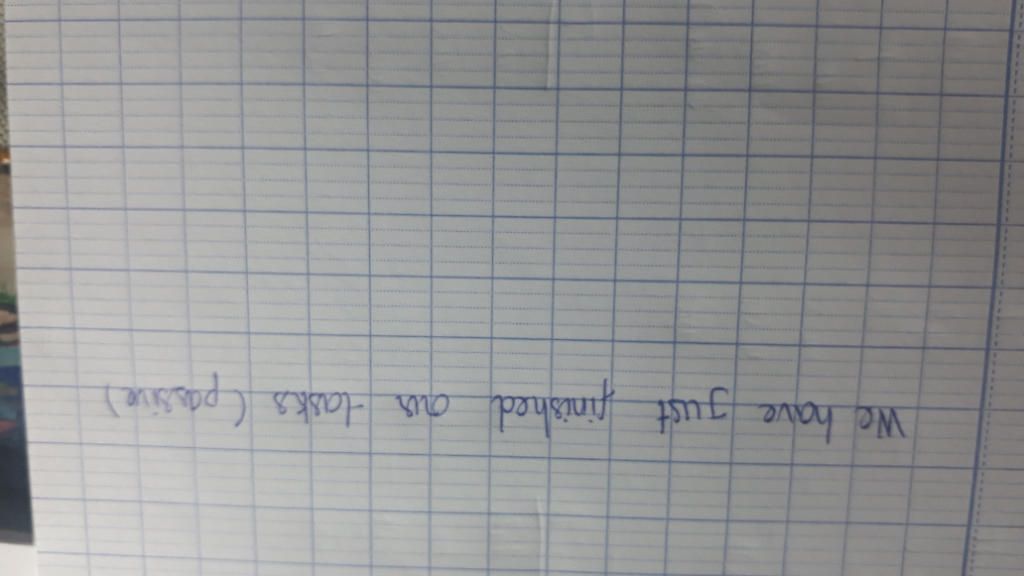 We have Just finished our tasks (passive)